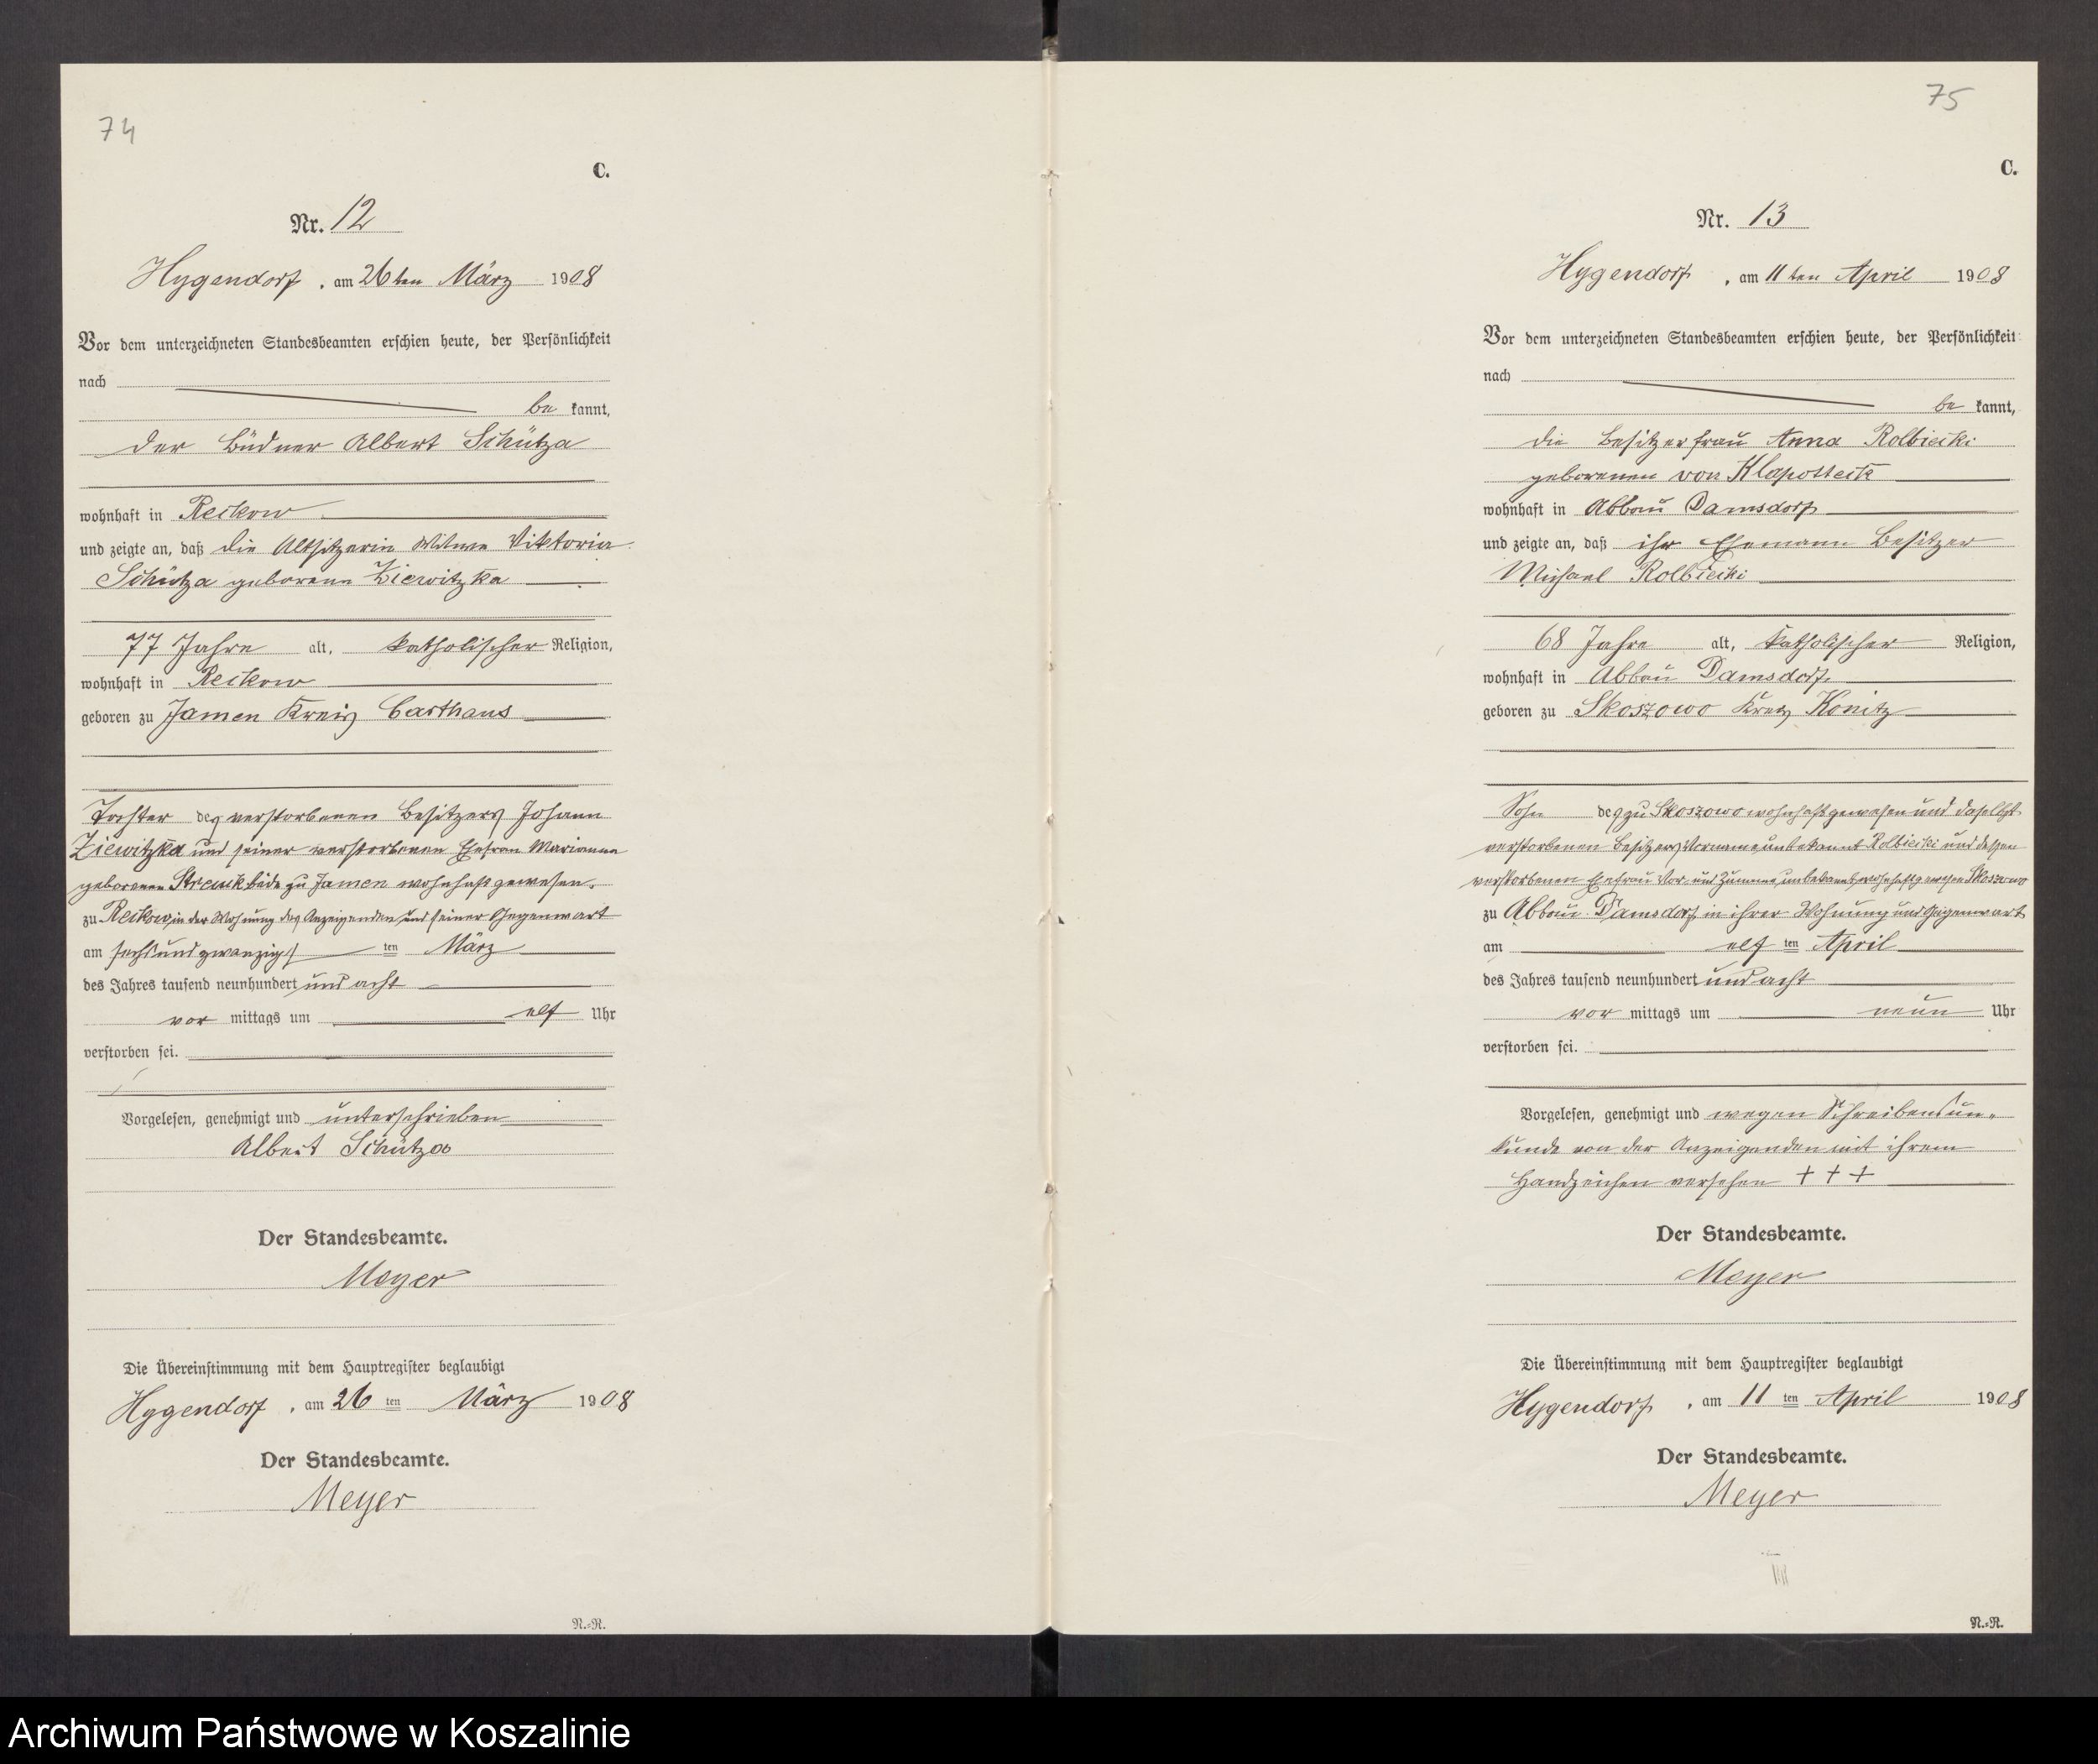 74
C.
Nr. 12
Hygendorf, am 26ten März 1908
Vor dem unterzeichneten Standesbeamten erschien heute, der Persönlichkeit
nach
be kannt,
der Büdner Albert Schütza
wohnhaft in Reckow
und zeigte an, daß die Altsitzerin Witwe Viktoria
Schütza geborene Ziewitzka
77 Jahre alt, katholischer Religion,
wohnhaft in Reckow
geboren zu Jamen Kreis Carthaus
Tochter des verstorbenen Besitzers Johann
Ziewitzka und seiner verstorbenen Ehefrau Marianna
geborenen beide zu Jamen wohnhaft gewesen.
zu Reckow, in der Wohnung des Anzeigenden und seiner Gegenwart
am sechsundzwanzigsten März
des Jahres tausend neunhundert und acht
vor mittags um elf Uhr
verstorben sei.
Vorgelesen, genehmigt und unterschrieben
Albert Schütza
Der Standesbeamte.
Meyer
Die Übereinstimmung mit dem Hauptregister beglaubigt
Hygendorf, am 26 ten März 1908
Der Standesbeamte.
Meyer
N.=R.
75
C.
Nr. 13
Hygendorf, am 11ten April 1908
Vor dem unterzeichneten Standesbeamten erschien heute, der Persönlichkeit
nach
be kannt,
die Besitzerfrau Anna Rolbiecki
geborenen von Klapotteck
wohnhaft in Abbau Damsdorf
und zeigte an, daß ihr Ehemann Besitzer
Michael Rolbiecki
68 Jahre alt, katholischer Religion,
wohnhaft in Abbau Damsdorf,
geboren zu Skoszowo Kreis Konitz
Sohn des zu Skoszowo wohnhaft gewesen und daselbst
verstorbenen Besitzers Vorname unbekannt Rolbiecki und dessen
verstorbenen Ehefrau Vor- und Zuname unbekannt, wohnhaft gewesen Skoszowo
zu Abbau Damsdorf in ihrer Wohnung und Gegenwart
am elf ten April
des Jahres tausend neunhundert und acht
vor mittags um neun Uhr
verstorben sei.
Vorgelesen, genehmigt und wegen Schreibensun-
kunde von der Anzeigenden mit ihrem
Handzeichen versehen + + +
Der Standesbeamte.
Meyer
Die Übereinstimmung mit dem Hauptregister beglaubigt
Hygendorf, am 11 ten April 1908
Der Standesbeamte.
Meyer
N.=R.
Archiwum Państwowe w Koszalinie